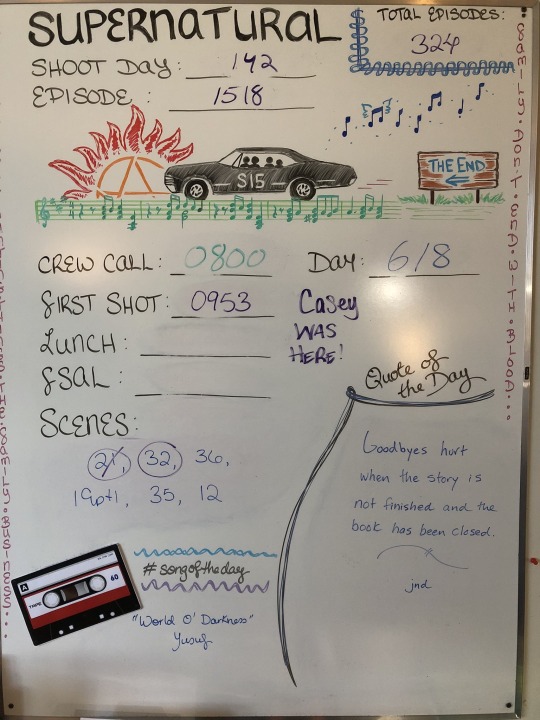 SUPERNATURAL
TOTAL EPISODES:
324
SHOOT DAY: 142
EPISODE : 1518
THE END
S15
CREW CALL: 0800 DAY: 6/8
FIRST SHOT: 0953
Casey
WAS
HERE!
LUNCH:
FSAL :
Quote of
the Day
SCENES:
21, 32, 36,
19pt1, 35, 12
Goodbyes hurt
when the story is
not finished and the
book has been closed.
jnd
A
60
TAPE
#songoftheday
"World O' Darkness"
Yusuf
FAMILY.DON'T.END.WITH.BLOOD...
THINGS.THE.FAMILY.BUSINESS...